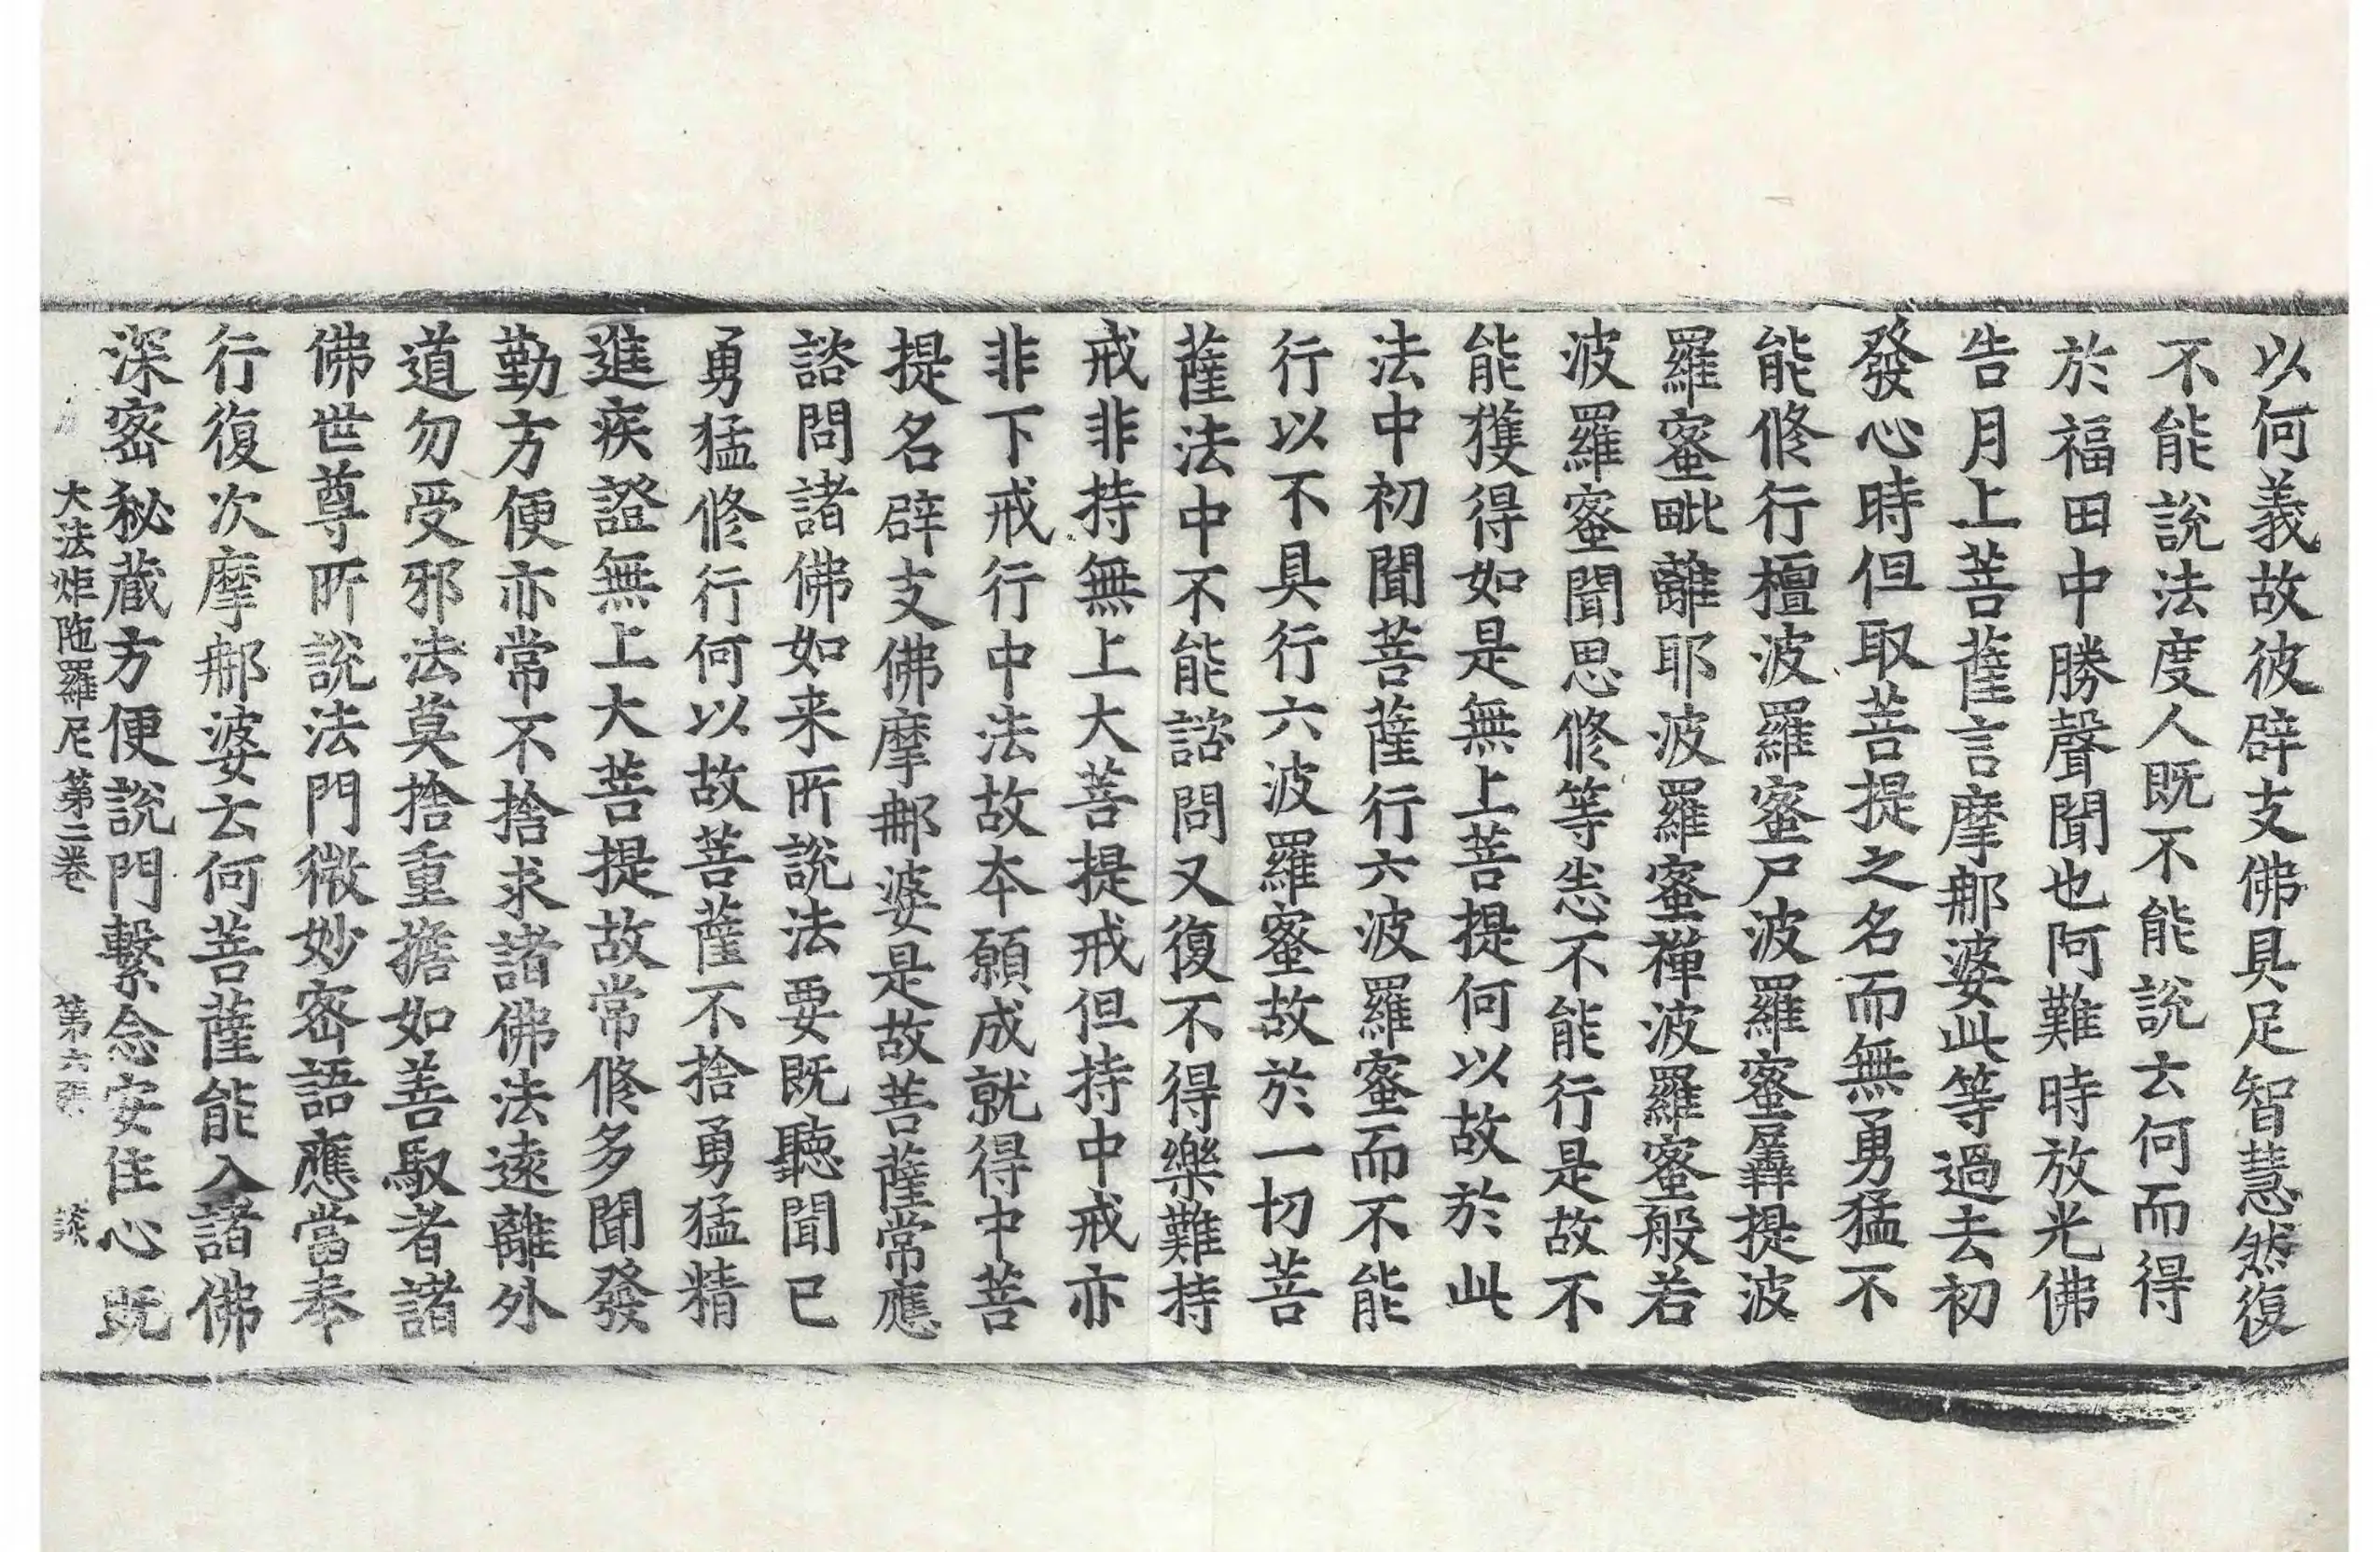 以何義故彼辟支佛具足智慧然復
不能說法度人既不能說去何而得
於福田中勝聲聞也阿難時放光佛
告月上菩薩言摩郍婆此等過去初
發心時但取菩提之名而無勇猛不
能修行檀波羅蜜尸波羅蜜羼提波
羅蜜毗離耶波羅蜜禪波羅蜜般若
波羅蜜聞思修等恙不能行是故不
能獲得如是無上菩提何以故於此
法中初聞菩薩行六波羅蜜而不能
行以不具行六波羅蜜故於一切菩
薩法中不能諮問又復不得樂難持
戒非持無上大菩提戒但持中戒亦
非下戒行中法故本願成就得中菩
提名辟支佛摩郍婆是故菩薩常應
諮問諸佛如来所說法要既聽聞已
勇猛修行何以故菩薩不捨勇猛精
進疾證無上大菩提故常修多聞發
勤方便亦常不捨求諸佛法遠離外
道勿受邪法莫捨重擔如善馭者諸
佛世尊所說法門微妙密語應當奉
行復次摩郍婆云何菩薩能入諸佛
深密秘蔵方便說門繫念安住心既
大法炬陁羅尼第二卷 第六張